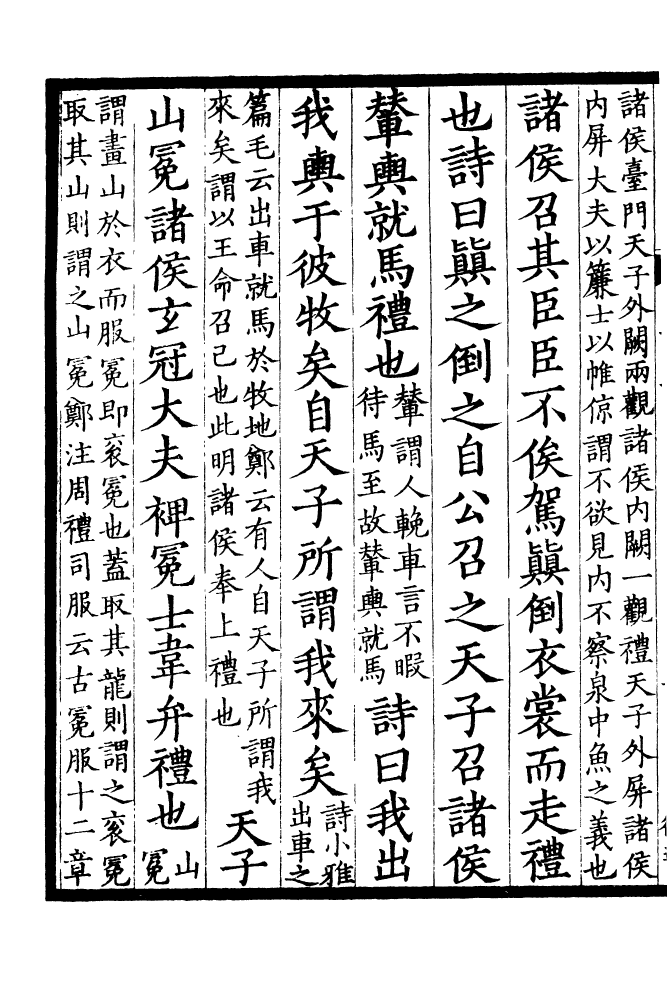 諸侯臺門天子外闕兩觀諸侯内闕一觀禮天子外屏諸侯
内屏大夫以簾士以帷倞謂不欲見内不察泉中魚之義也
諸侯召其臣臣不俟駕顚倒衣裳而走禮
也詩曰顚之倒之自公召之天子召諸侯
輦輿就馬禮也
輦謂人輓車言不暇
待馬至故輦輿就馬
詩曰我出
我輿于彼牧矣自天子所謂我來矣
詩小雅
出車之
篇毛云出車就馬於牧地鄭云有人自天子所謂我
來矣謂以王命召已也此明諸侯奉上禮也
天子
山冕諸侯玄冠大夫裨冕士韋弁禮也
山
冕
謂畫山於衣而服冕即衮冕也蓋取其龍則謂之衮冕
取其山則謂之山冕鄭注周禮司服云古冕服十二章